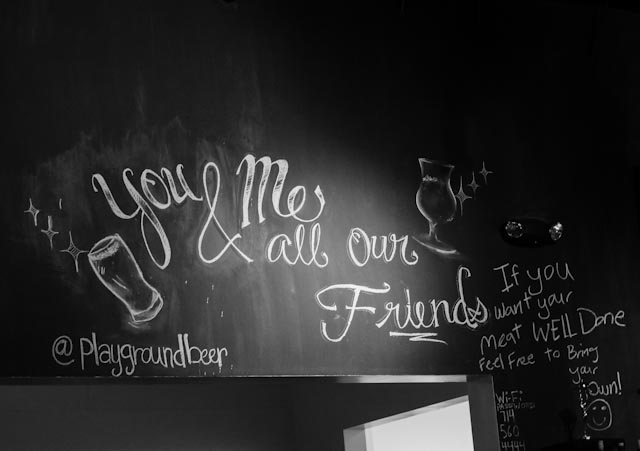 You & Me
all Our
Friends
@playgroundbeer
If you
want your
Meat WELL Done
Feel Free to Bring
your
own!
Wi-Fi
PASSWORD
714
560
4444